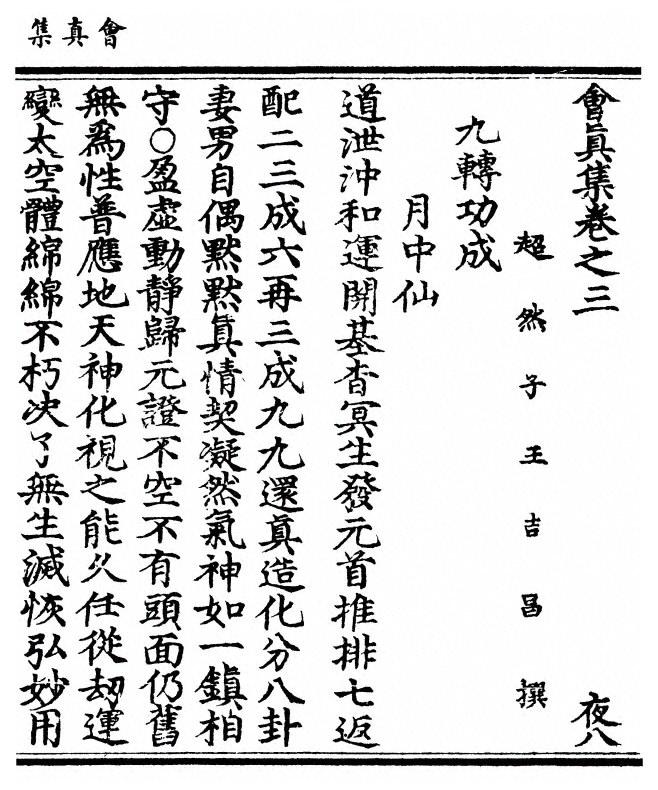 會真集
會眞集卷之三　夜八
超然子王吉昌撰
九轉功成
月中仙
道泄沖和運開基杳冥生發元首推排七返
配二三成六再三成九九還真造化分八卦
妻男自偶默默真情契凝然氣神如一鎮相
守○盈虛動靜歸元證不空不有頭面仍舊
無爲性普應地天神化視之能久任從劫運
變太空體綿綿不朽决了無生滅恢弘妙用